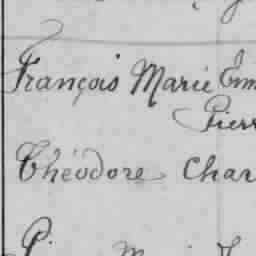 François Marie Em
Pierr
Théodore Char